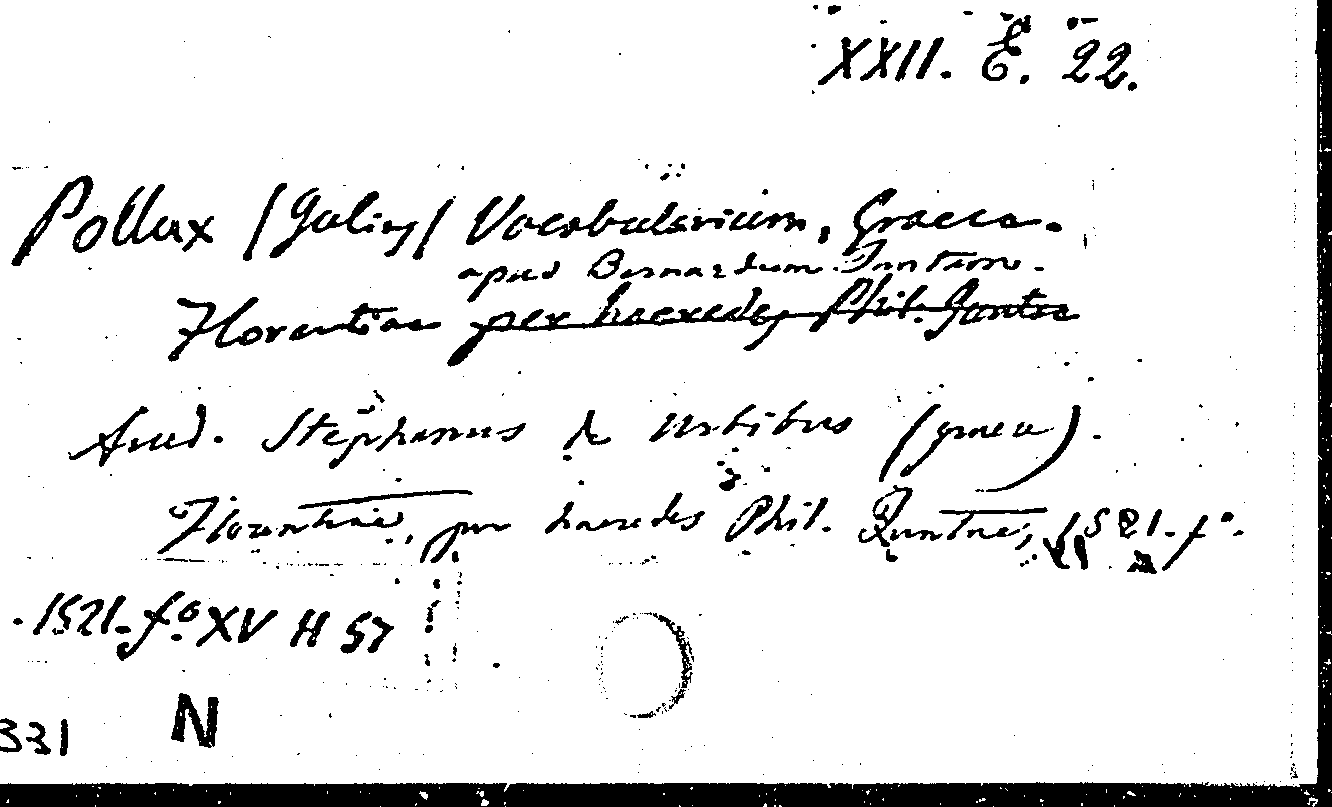 XXII. E. 22.
Pollux (Julius) Vocabularium, Graece.
apud Bernardum Juntam.
Florentiae per haeredes Phil. Juntae
Acced. Stephanus de Urbibus (graece).
Florentiae, per haeredes Phil. Juntae, 1521. fo.
1521. fo. XV H 57
331 N